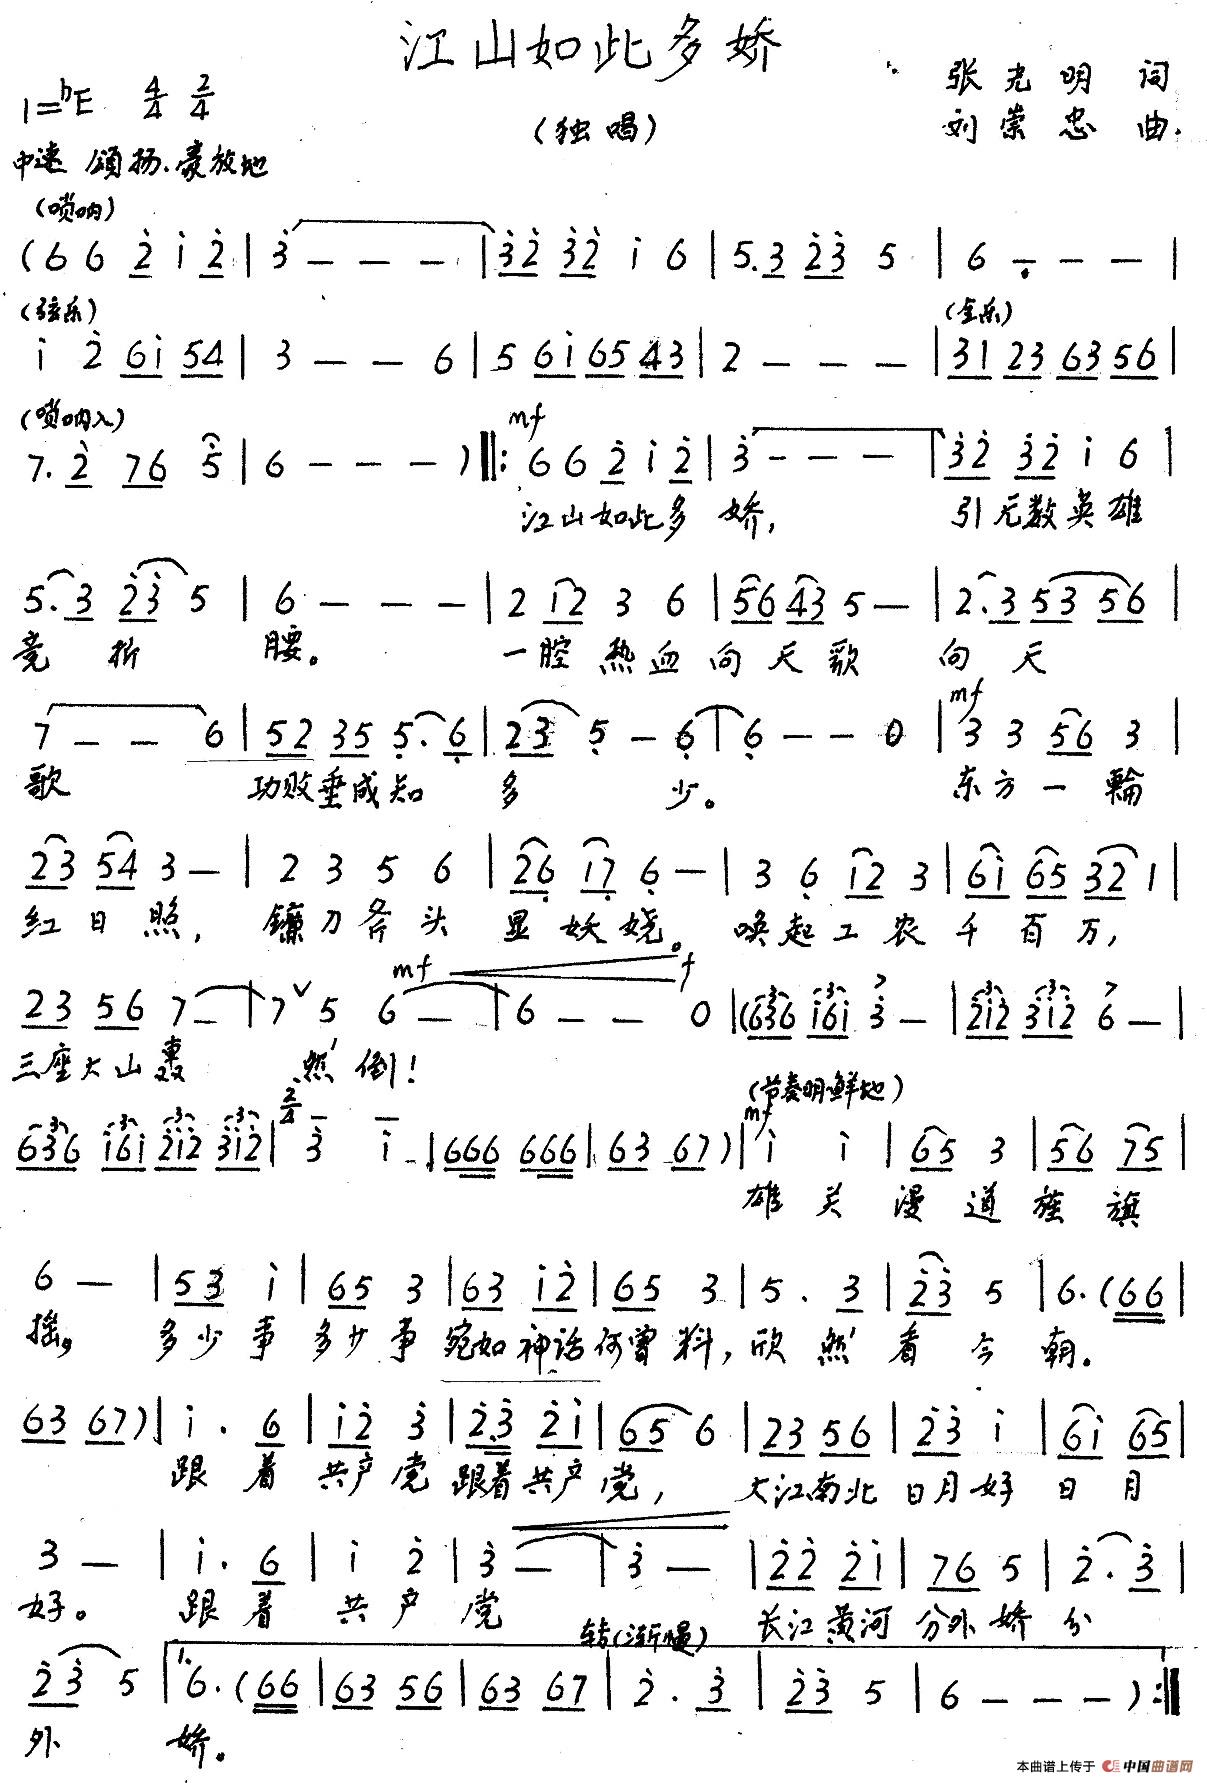 江山如此多娇
1=♭E 4/4 2/4
(独唱)
张光明 词
刘崇忠 曲.
中速 颂扬.豪放地
(唢呐)
(6 6 2̇ i 2̇ | 3̇ — — — | 3̇2̇ 3̇2̇ i 6 | 5.3 2̇3̇ 5 | 6 — — — |
(弦乐) (全乐)
i 2̇ 6i 54 | 3 — — 6 | 5 6i 65 43 | 2 — — — | 31 23 63 56 |
(唢呐入) mf
7. 2̇ 76 5̇ | 6 — — — ) ‖: 6 6 2̇ i 2̇ | 3̇ — — — | 3̇2̇ 3̇2̇ i 6 |
江山如此多娇, 引无数英雄
5.3 2̇3̇ 5 | 6 — — — | 2 i2 3 6 | 56 43 5 — | 2.3 53 56 |
竞折腰。 一腔热血向天歌 向天
mf
7 — — 6 | 52 35 5̣. 6̣ | 23 5̣ — 6̣ | 6̣ — — 0 | 3 3 56 3 |
歌 功败垂成知多少。 东方一輪
23 54 3 — | 2 3 5 6 | 26̣ 17̣ 6̣ — | 3 6̣ 12 3 | 6i 65 32 1 |
红日照, 镰刀斧头 显妖娆。 唤起工农千百万,
mf f
23 56 7 — | 7 ˇ 5 6 — | 6 — — 0 | (636 i6i 3̇ — | 2̇i2̇ 3̇i2̇ 6 — |
三座大山轰然倒!
(节奏明鲜地)
2/4 mf
636 i6i 2̇i2̇ 3̇i2̇ | 3̇ i | 666 666 | 63 67 ) | i i | 65 3 | 56 75 |
雄关漫道旌旗
6 — | 53 i | 65 3 | 63 i2̇ | 65 3 | 5. 3 | 2̇3̇ 5 | 6. (66 |
摇。 多少事 多少事 宛如神话何曾料, 欣然看今朝。
63 67 ) | i. 6 | i2̇ 3̇ | 2̇.3̇ 2̇i | 65 6 | 23 56 | 2̇3̇ i | 6i 65 |
跟着共产党 跟着共产党, 大江南北日月好 日月
3 — | i. 6 | i 2̇ | 3̇ — | 3̇ — | 2̇2̇ 2̇i | 76 5 | 2̇. 3̇ |
好。 跟着共产党 长江黄河分外娇 分
转(渐慢)
2̇3̇ 5 | 1. 6. (66 | 63 56 | 63 67 | 2̇. 3̇ | 2̇3̇ 5 | 6 — — — ) :‖
外娇。
本曲谱上传于 中国曲谱网